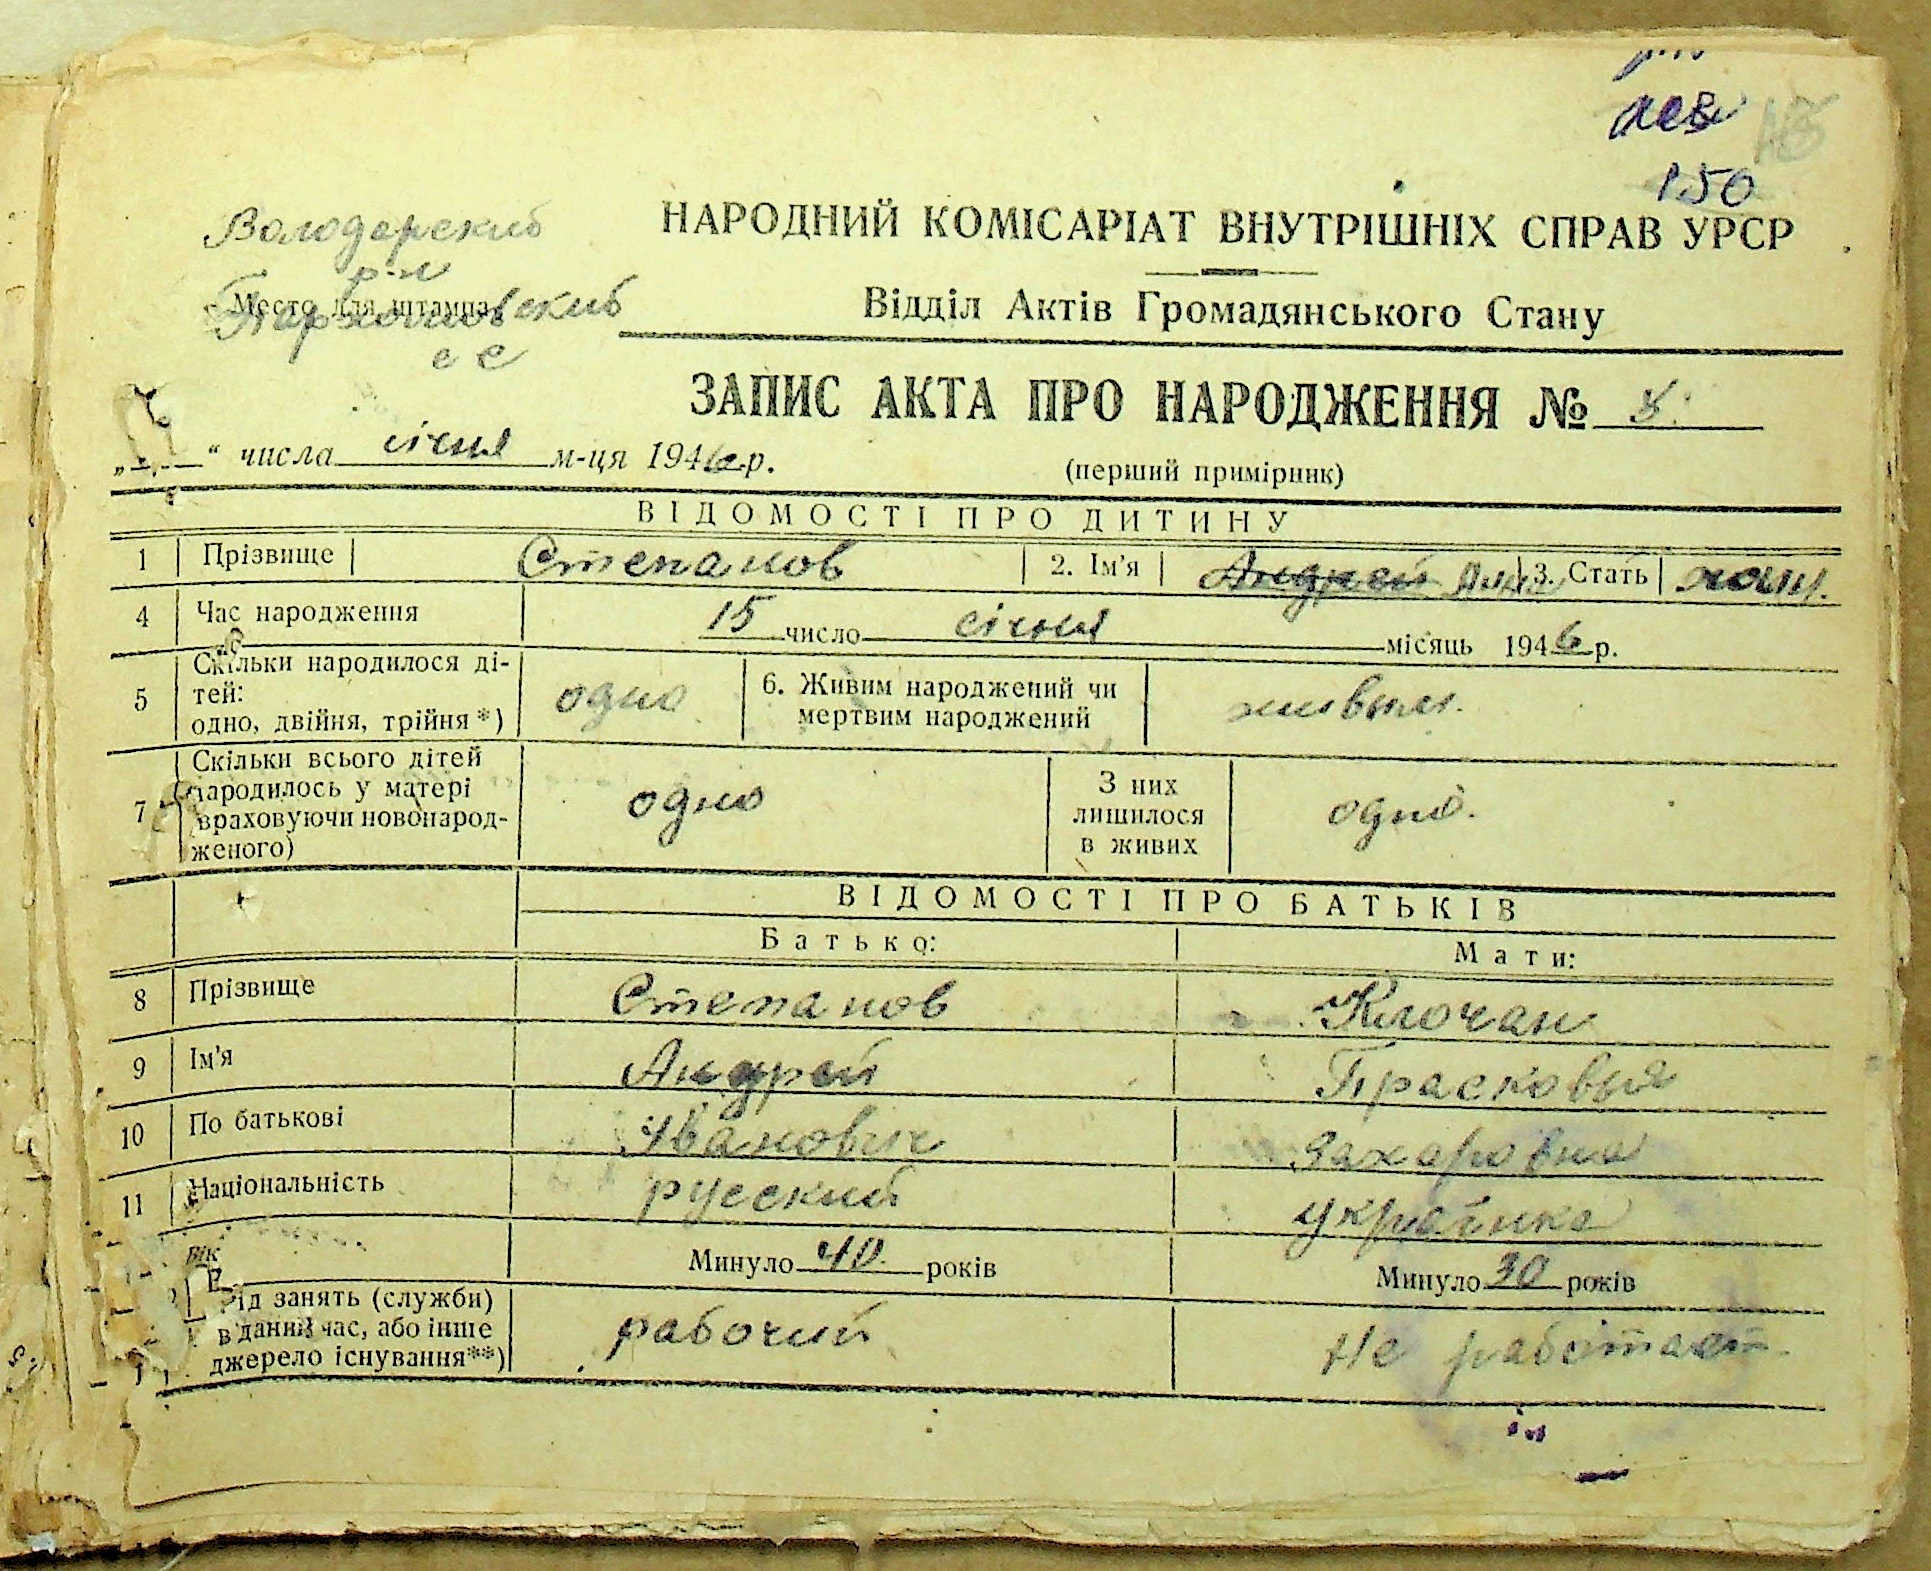 лев
150
Володарский
р-н
Место для штампа
Пархомовский
с с
НАРОДНИЙ КОМІСАРІАТ ВНУТРІШНІХ СПРАВ УРСР
Відділ Актів Громадянського Стану
ЗАПИС АКТА ПРО НАРОДЖЕННЯ № 8.
" числа січня м-ця 1946 р.
(перший примірник)
ВІДОМОСТІ ПРО ДИТИНУ
1 Прізвище Степанов 2. Ім'я Андрей 3. Стать
4 Час народження 15 число січня місяць 1946 р.
5 Скільки народилося ді-
тей:
одно, двійня, трійня *) одно 6. Живим народжений чи
мертвим народжений живым.
7 Скільки всього дітей
народилось у матері
враховуючи новонарод-
женого) одно З них
лишилося
в живих одно.
ВІДОМОСТІ ПРО БАТЬКІВ
Батько: Мати:
8 Прізвище Степанов Клочан
9 Ім'я Андрей Прасковья
10 По батькові Іванович Захаровна
11 Національність русский українка
вік Минуло 40 років Минуло 30 років
Рід занять (служби)
в даний час, або інше
джерело існування**) рабочий Не работает